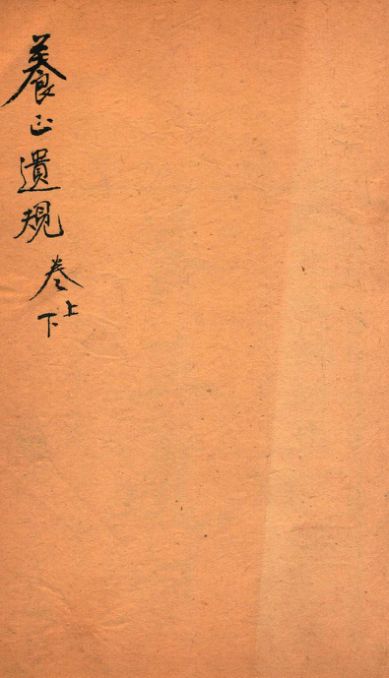 養正遺規 卷上下